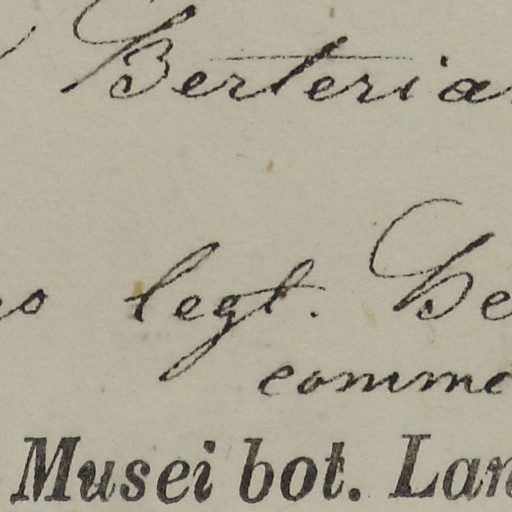 Berteria
legt. Be
comme
Musei bot. Lan